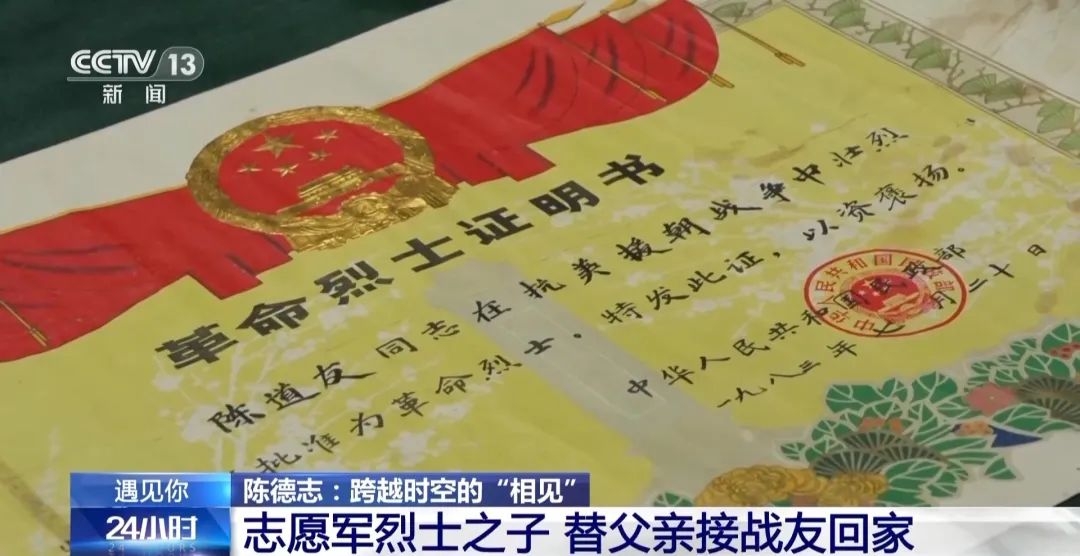 CCTV 13
新闻
革命烈士证明书
陈道友同志在抗美援朝战争中壮烈
批准为革命烈士。特发此证,以资褒扬。
中华人民共和国民政部
一九八三年七月二十日
遇见你
陈德志:跨越时空的“相见”
24小时
志愿军烈士之子 替父亲接战友回家